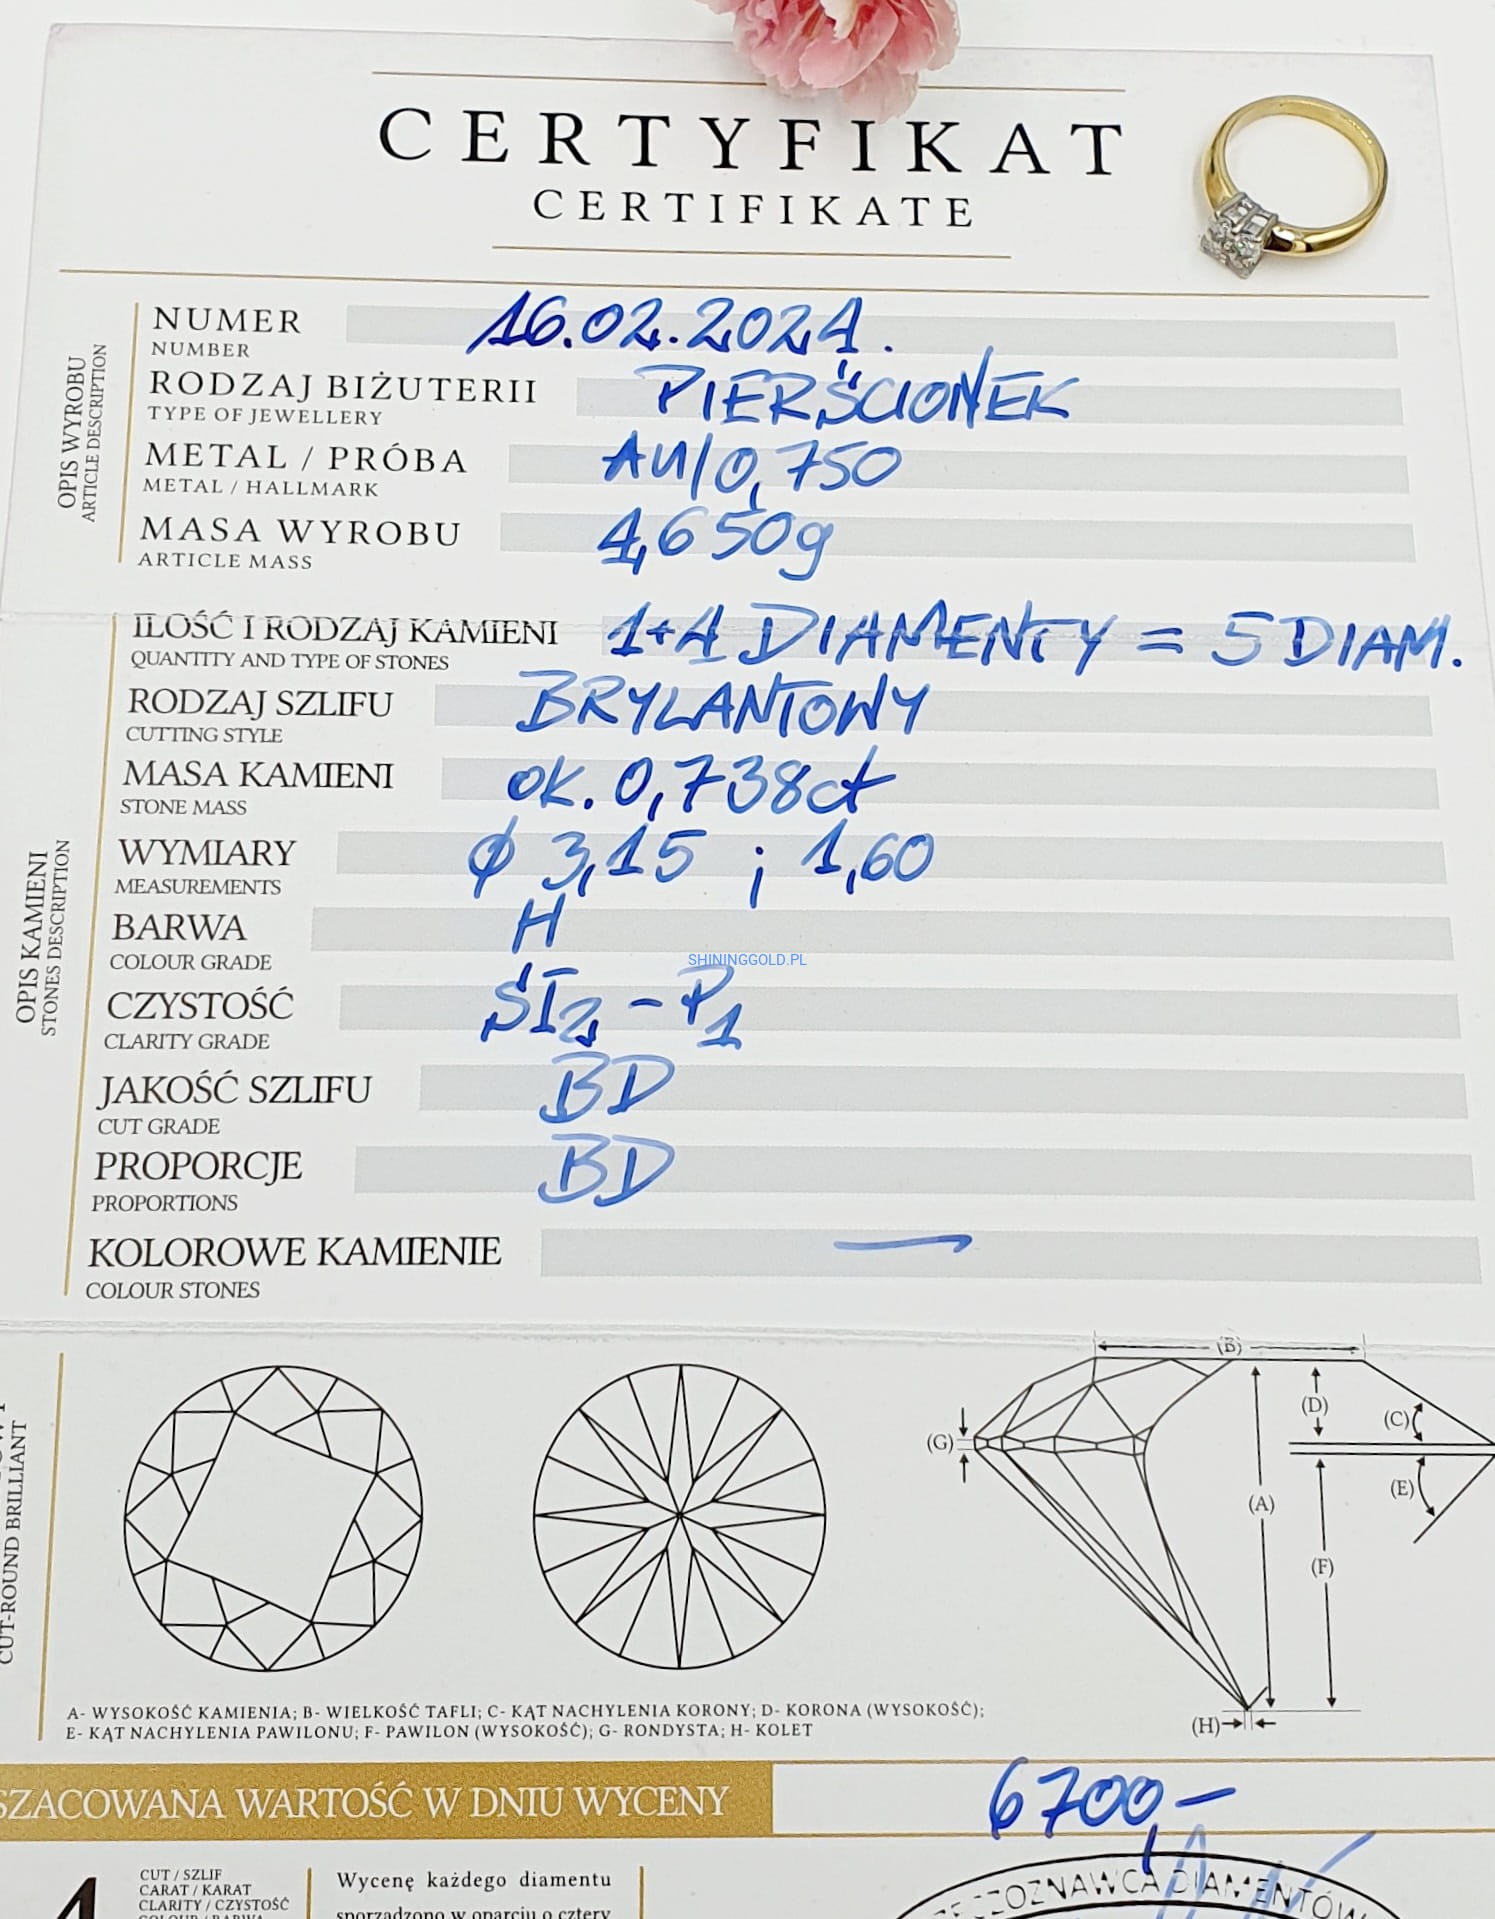 CERTYFIKAT
CERTIFIKATE
OPIS WYROBU
ARTICLE DESCRIPTION
NUMER 16.02.2024.
NUMBER
RODZAJ BIŻUTERII PIERŚCIONEK
TYPE OF JEWELLERY
METAL / PRÓBA AU/0,750
METAL / HALLMARK
MASA WYROBU 4,650g
ARTICLE MASS
OPIS KAMIENI
STONES DESCRIPTION
ILOŚĆ I RODZAJ KAMIENI 1+4 DIAMENTY = 5 DIAM.
QUANTITY AND TYPE OF STONES
RODZAJ SZLIFU BRYLANTOWY
CUTTING STYLE
MASA KAMIENI OK. 0,738ct
STONE MASS
WYMIARY ϕ 3,15 ; 1,60
MEASUREMENTS
BARWA H
COLOUR GRADE
SHININGGOLD.PL
CZYSTOŚĆ SI2 - P1
CLARITY GRADE
JAKOŚĆ SZLIFU BD
CUT GRADE
PROPORCJE BD
PROPORTIONS
KOLOROWE KAMIENIE —
COLOUR STONES
CUT-ROUND BRILLIANT
(B)
(D)
(C)
(G)
(E)
(A)
(F)
(H)
A- WYSOKOŚĆ KAMIENIA; B- WIELKOŚĆ TAFLI; C- KĄT NACHYLENIA KORONY; D- KORONA (WYSOKOŚĆ);
E- KĄT NACHYLENIA PAWILONU; F- PAWILON (WYSOKOŚĆ); G- RONDYSTA; H- KOLET
SZACOWANA WARTOŚĆ W DNIU WYCENY 6700,—
4
CUT / SZLIF
CARAT / KARAT
CLARITY / CZYSTOŚĆ
COLOUR / BARWA
Wycenę każdego diamentu
sporządzono w oparciu o cztery
RZECZOZNAWCA DIAMENTÓW